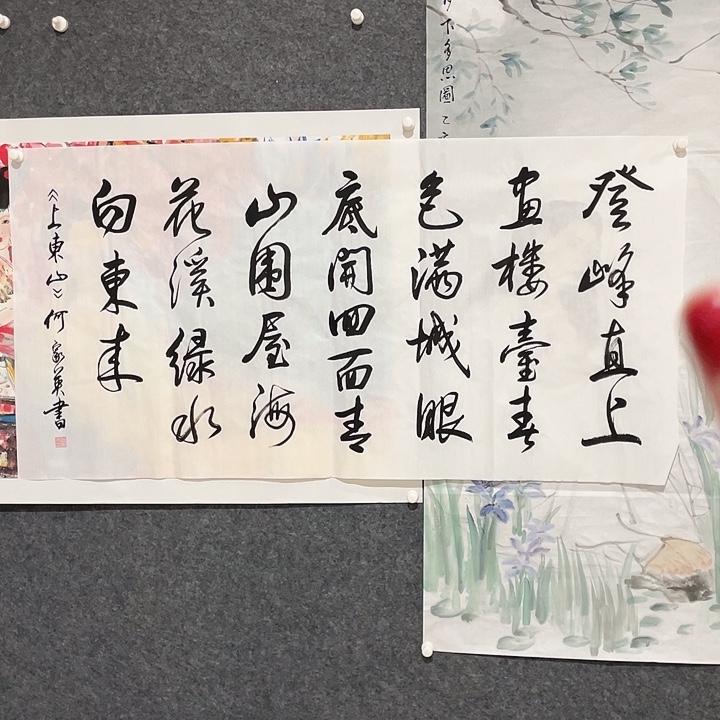 登峰直上
畫樓臺春
色滿城眼
底開四面青
山圍屋海
花溪綠水
向東來
《上東山》何家英書
下多思圖 乙